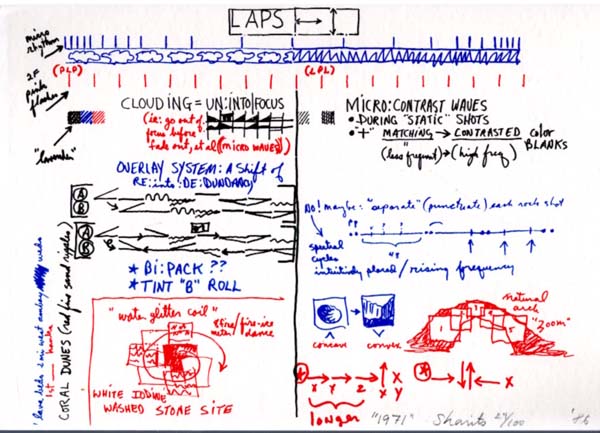 LAPS
micro rhythm
(PLP)
(LPL)
2F pink flashes
"lavender"
CLOUDING = UN:INTO|FOCUS
(ie: go out of
focus before
fade out, et al (MICRO WAVES))
MICRO:CONTRAST WAVES
• DURING "STATIC" SHOTS
• "+" MATCHING → CONTRASTED color
BLANKS
(less frequent) → (high freq)
OVERLAY SYSTEM: A Shift of
RE:into:DE:DUNDANCY
A
B
A
B
B
* Bi:PACK ??
* TINT "B" ROLL
NO! maybe: "separate" (punctuate) each rock shot
spectral
cycles
/ rising frequency
CORAL DUNES (red fire sand cycles)
"water glitter coil"
& fire/fire-ice
dance
WHITE IODINE
WASHED STONE SITE
concave
convex
natural
arch
"Zoom"
+ X Y Z X Y
* X
longer
"1971" Sharits 29/100 '86